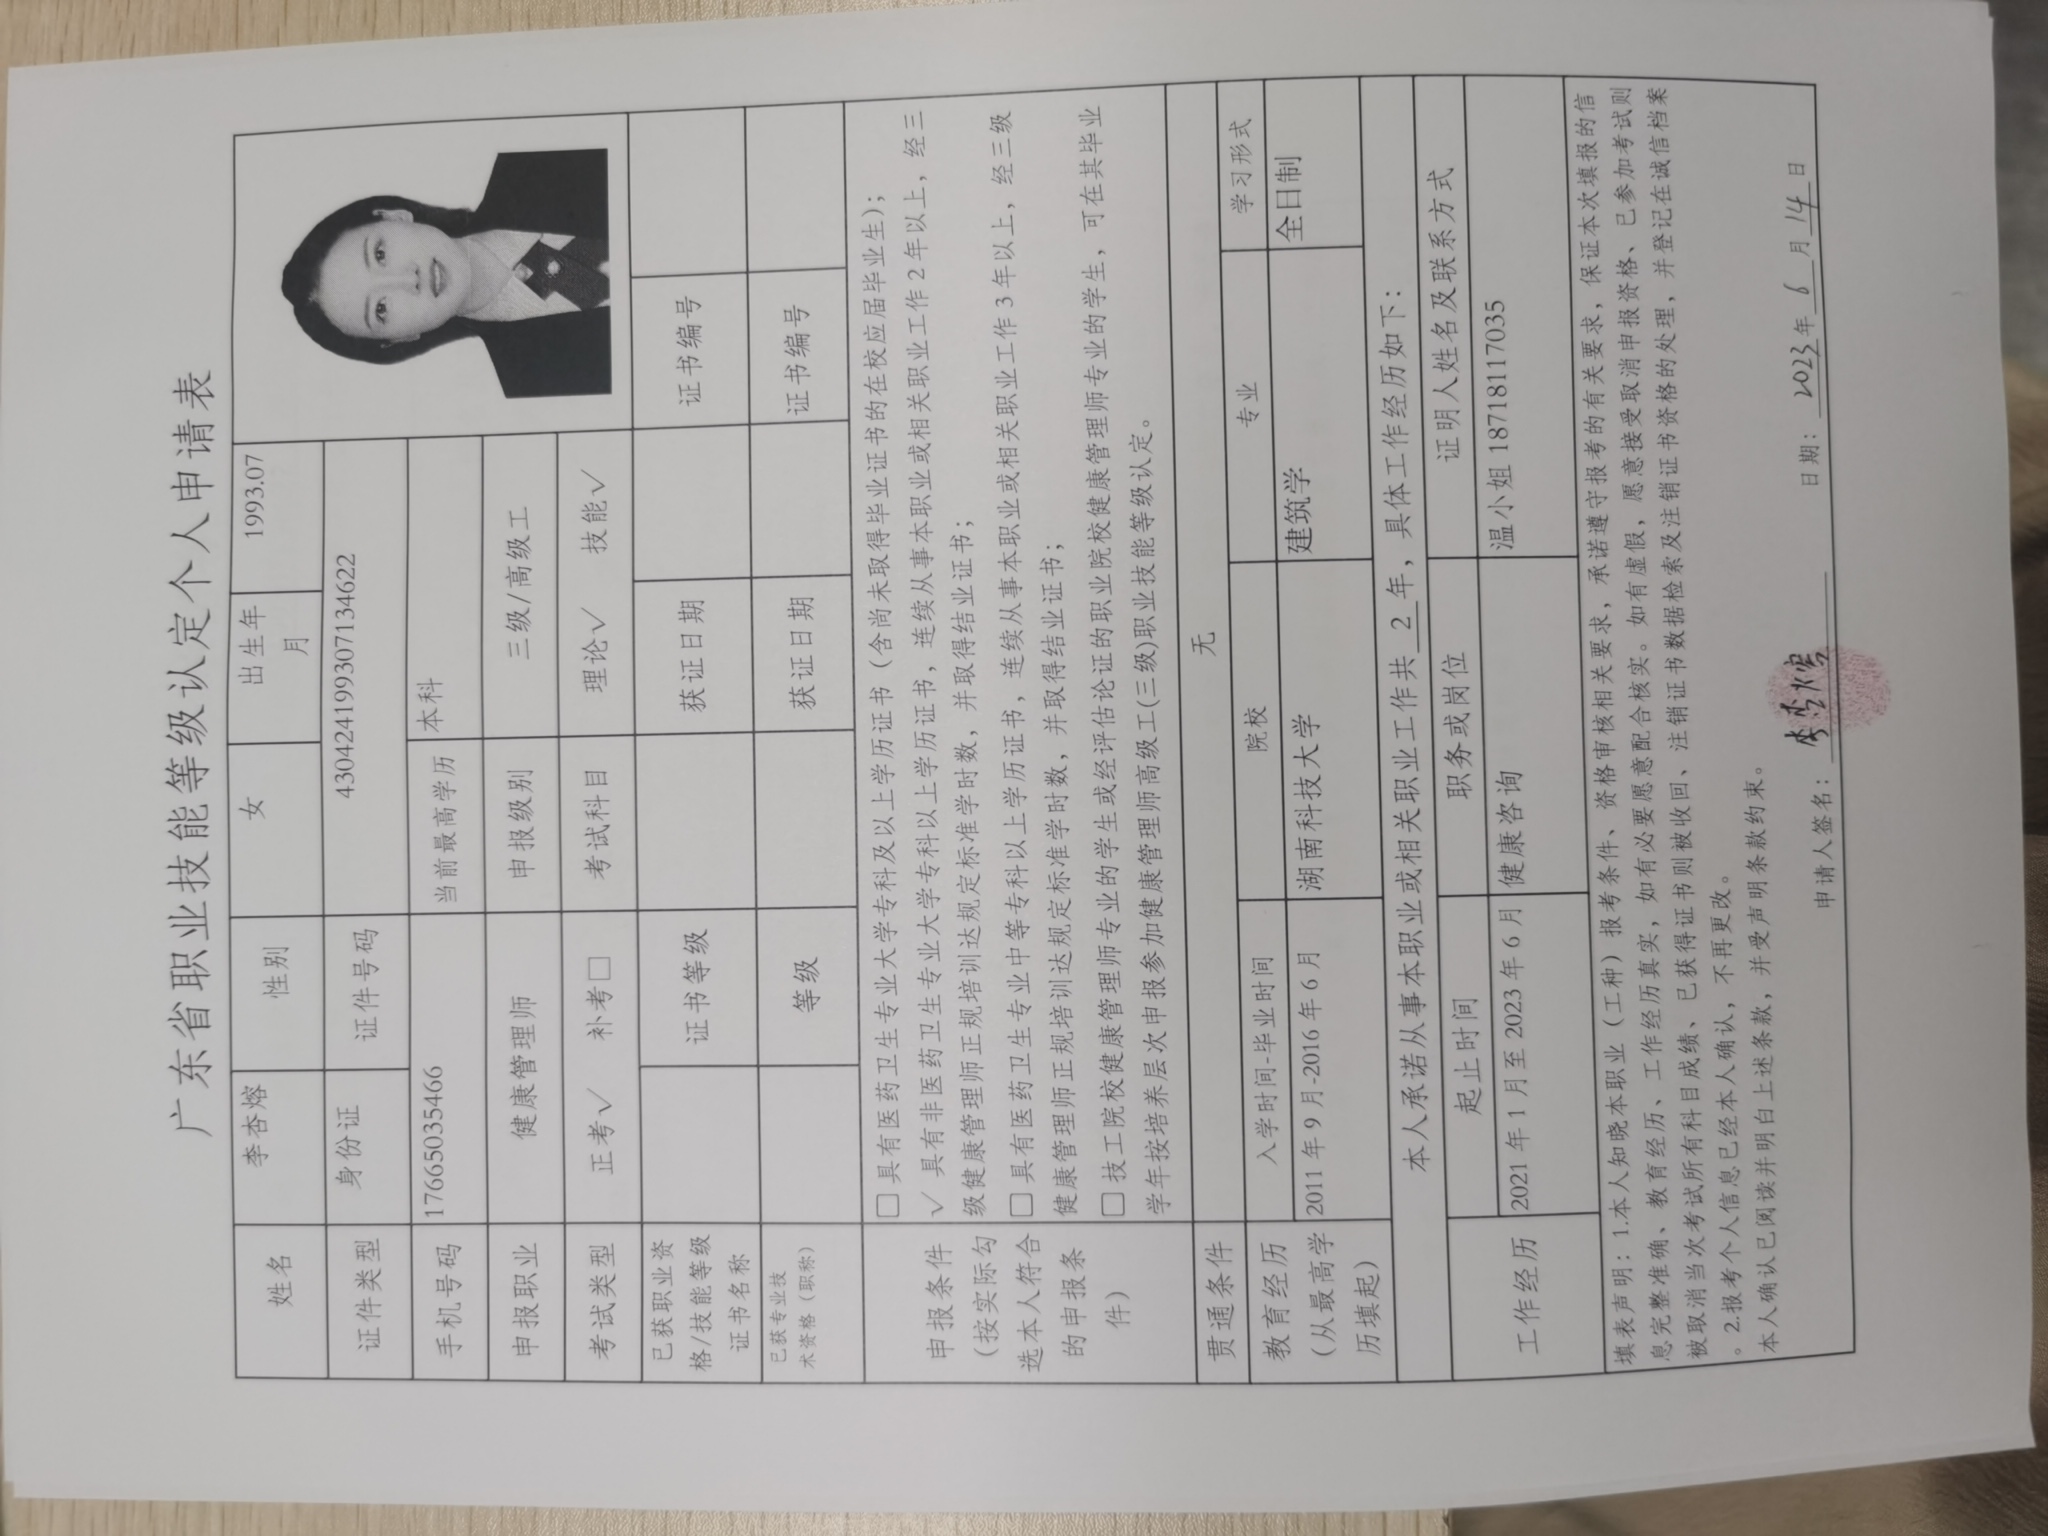 广东省职业技能等级认定个人申请表
姓名 李杏熔 性别 女 出生年月 1993.07
证件类型 身份证 证件号码 430424199307134622
手机号码 17665035466 当前最高学历 本科
申报职业 健康管理师 申报级别 三级/高级工
考试类型 正考√ 补考□ 考试科目 理论√ 技能√
已获职业资格/技能等级证书名称 证书等级 获证日期 证书编号
已获专业技术资格(职称) 等级 获证日期 证书编号
申报条件
(按实际勾
选本人符合
的申报条
件)
□ 具有医药卫生专业大学专科及以上学历证书(含尚未取得毕业证书的在校应届毕业生);
√ 具有非医药卫生专业大学专科以上学历证书,连续从事本职业或相关职业工作2年以上,经三
级健康管理师正规培训达规定标准学时数,并取得结业证书;
□ 具有医药卫生专业中等专科以上学历证书,连续从事本职业或相关职业工作3年以上,经三级
健康管理师正规培训达规定标准学时数,并取得结业证书;
□ 技工院校健康管理师专业的学生或经评估论证的职业院校健康管理师专业的学生,可在其毕业
学年按培养层次申报参加健康管理师高级工(三级)职业技能等级认定。
贯通条件 无
教育经历
(从最高学
历填起)
入学时间-毕业时间 院校 专业 学习形式
2011年9月-2016年6月 湖南科技大学 建筑学 全日制
本人承诺从事本职业或相关职业工作共 2 年,具体工作经历如下:
工作经历
起止时间 职务或岗位 证明人姓名及联系方式
2021年1月至2023年6月 健康咨询 温小姐 18718117035
填表声明:1.本人知晓本职业(工种)报考条件、资格审核相关要求,承诺遵守报考的有关要求,保证本次填报的信
息完整准确、教育经历、工作经历真实,如有必要愿意配合核实。如有虚假,愿意接受取消申报资格、已参加考试则
被取消当次考试所有科目成绩、已获得证书则被收回、注销证书数据检索及注销证书资格的处理,并登记在诚信档案
。2.报考个人信息已经本人确认,不再更改。
本人确认已阅读并明白上述条款,并受声明条款约束。
申请人签名:李杏熔 日期:2023年6月14日